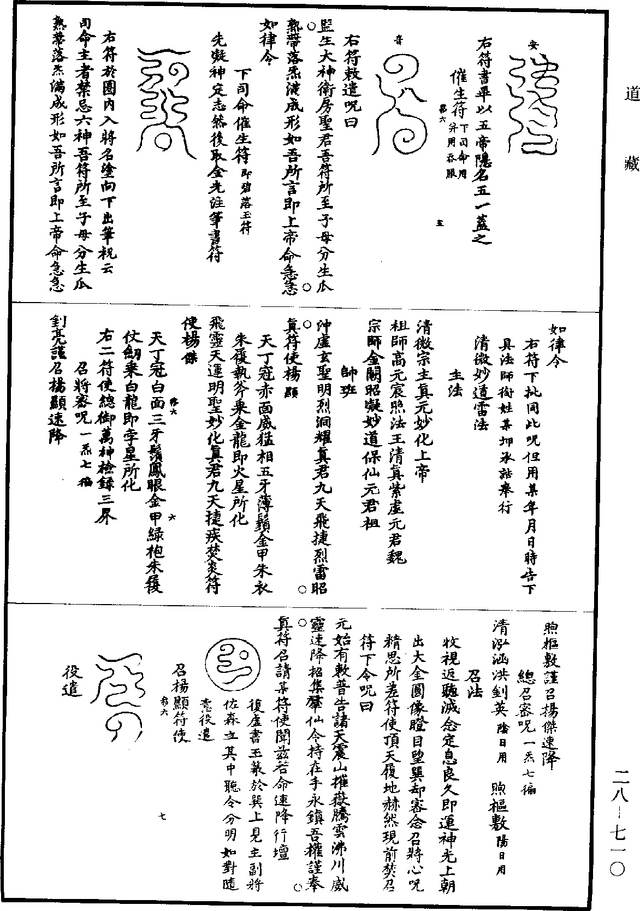 道藏
安
右符書畢以五帝隱名五一蓋之
催生符下司命用分用吞服
音
右符敕遣呪曰
監生大神衛房聖君吾符所至子母分生瓜
熟蔕落炁滿成形如吾所言即上帝命急急
如律令
下司命催生符即碧落玉符
先凝神定志然後取金光注筆書符
右符於圈内入將名塗向下出筆祝云
司命主者禁忌六神吾符所至子母分生瓜
熟蔕落炁滿成形如吾所言即上帝命急急
如律令
右符下批同此呪但用某年月日時告下
具法師銜姓某押承誥奉行
清微妙道雷法
主法
清微宗主真元妙化上帝
祖師高元宸照法王清真紫虛元君魏
宗師金闕昭凝妙道保仙元君祖
帥班
沖虛玄聖明烈洞耀真君九天飛捷烈雷昭
真符使楊顯
天丁冠赤面威猛相五牙薄鬚金甲朱衣
朱履執斧乘金龍即火星所化
飛靈天運明聖妙化真君九天捷疾焚炎符
使楊傑
天丁冠白面三牙鬚鳳眼金甲綠袍朱履
仗劒乘白龍即孛星所化
右二符使總御萬神檢錄三界
召將密呪一炁七徧
釗亮謹召楊顯速降
煦樞敷謹召楊傑速降
總召密呪一炁七徧
清泓涵洪釗英陰日用 煦樞敷陽日用
召法
收視返聽滅念定息良久即運神光上朝
出大金圓像瞪目望巽却審念召將心呪
精思所差符使頂天履地赫然現前焚召
符下令呪曰
元始有敕普告諸天震山摧嶽騰雲沸川威
靈速降招集羣仙令持在手永鎮吾權謹奉
真符召請某符使聞兹若命速降行壇
復虛書玉篆於巽上見主副將
佐森立其中聽令分明如對隨
意役遣
召楊顯符使
役遣
二八-七一〇